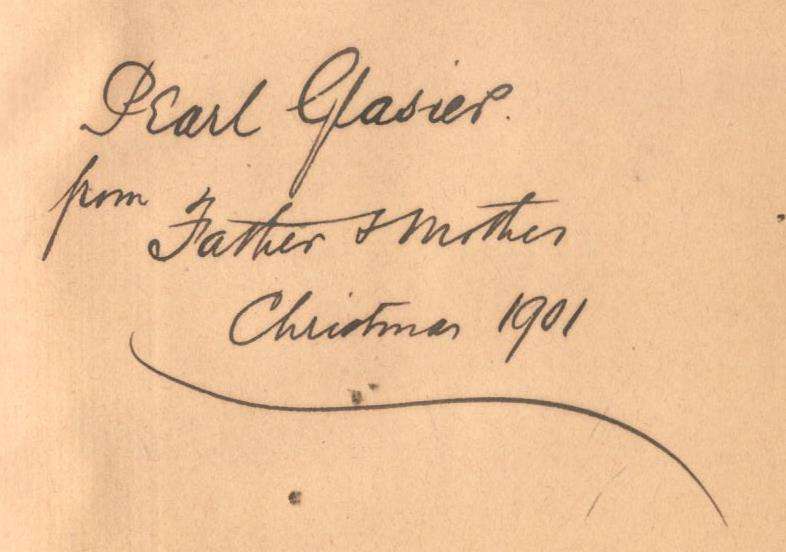 Pearl Glasier.
from
Father & Mother
Christmas 1901